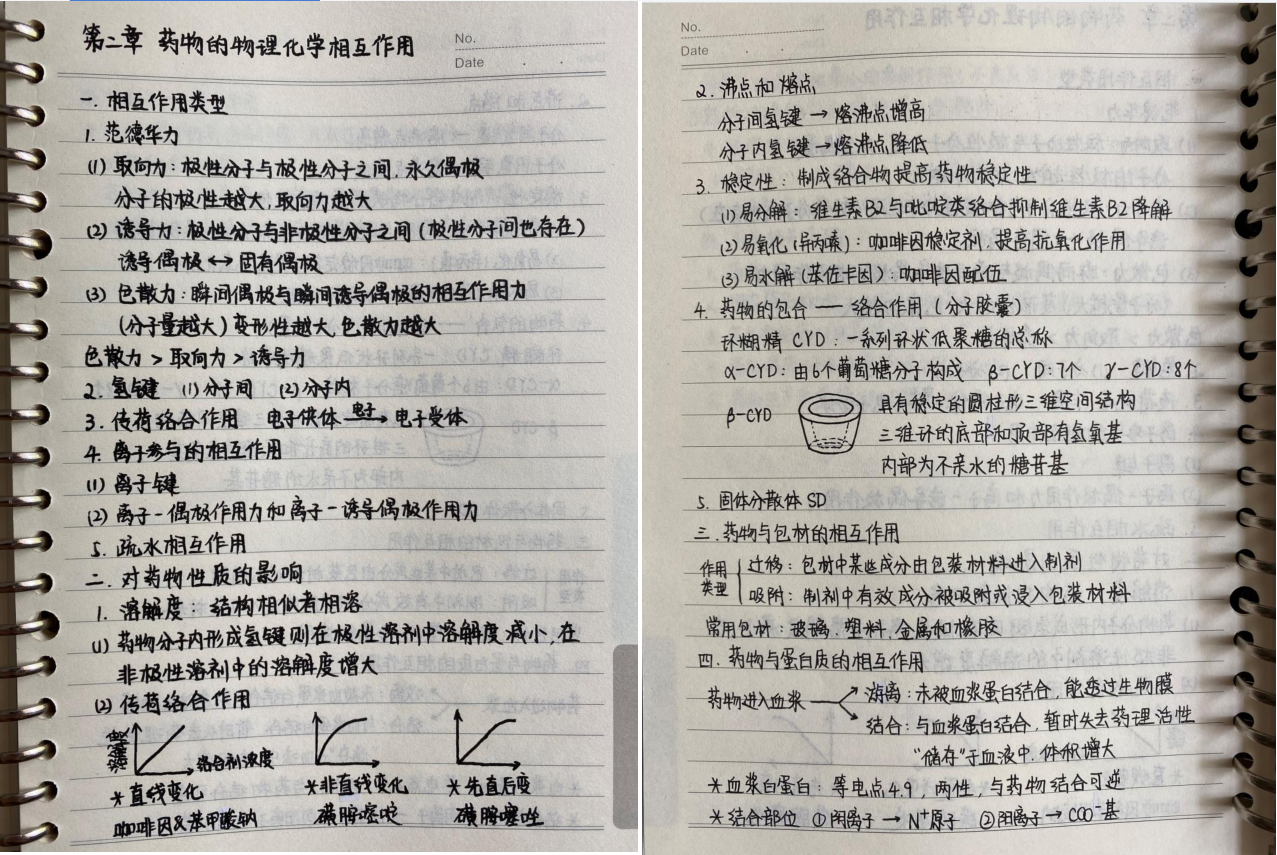 第二章 药物的物理化学相互作用
No.
Date
一. 相互作用类型
1. 范德华力
(1) 取向力：极性分子与极性分子之间，永久偶极
分子的极性越大，取向力越大
(2) 诱导力：极性分子与非极性分子之间（极性分子间也存在）
诱导偶极 ↔ 固有偶极
(3) 色散力：瞬间偶极与瞬间诱导偶极的相互作用力
（分子量越大）变形性越大，色散力越大
色散力 > 取向力 > 诱导力
2. 氢键 (1) 分子间 (2) 分子内
3. 传荷络合作用 电子供体 电子→ 电子受体
4. 离子参与的相互作用
(1) 离子键
(2) 离子-偶极作用力和离子-诱导偶极作用力
5. 疏水相互作用
二. 对药物性质的影响
1. 溶解度：结构相似者相溶
(1) 药物分子内形成氢键则在极性溶剂中溶解度减小，在
非极性溶剂中的溶解度增大
(2) 传荷络合作用
络合剂浓度
*直线变化 *非直线变化 *先直后变
咖啡因&苯甲酸钠 磺胺噻啶 磺胺噻唑
No.
Date
2. 沸点和熔点
分子间氢键 → 熔沸点增高
分子内氢键 → 熔沸点降低
3. 稳定性：制成络合物提高药物稳定性
(1) 易分解：维生素B2与吡啶类络合抑制维生素B2降解
(2) 易氧化（异丙嗪）：咖啡因稳定剂，提高抗氧化作用
(3) 易水解（苯佐卡因）：咖啡因配伍
4. 药物的包合 —— 络合作用（分子胶囊）
环糊精 CYD：一系列环状低聚糖的总称
α-CYD：由6个葡萄糖分子构成 β-CYD：7个 γ-CYD：8个
β-CYD 具有稳定的圆柱形三维空间结构
三维环的底部和顶部有氢氧基
内部为不亲水的糖苷基
5. 固体分散体 SD
三. 药物与包材的相互作用
作用类型 迁移：包材中某些成分由包装材料进入制剂
吸附：制剂中有效成分被吸附或浸入包装材料
常用包材：玻璃. 塑料. 金属和橡胶
四. 药物与蛋白质的相互作用
药物进入血浆 游离：未被血浆蛋白结合，能透过生物膜
结合：与血浆蛋白结合，暂时失去药理活性
“储存”于血液中，体积增大
*血浆白蛋白：等电点4.9，两性，与药物结合可逆
*结合部位 ①阴离子 → N⁺原子 ②阳离子 → COO⁻基